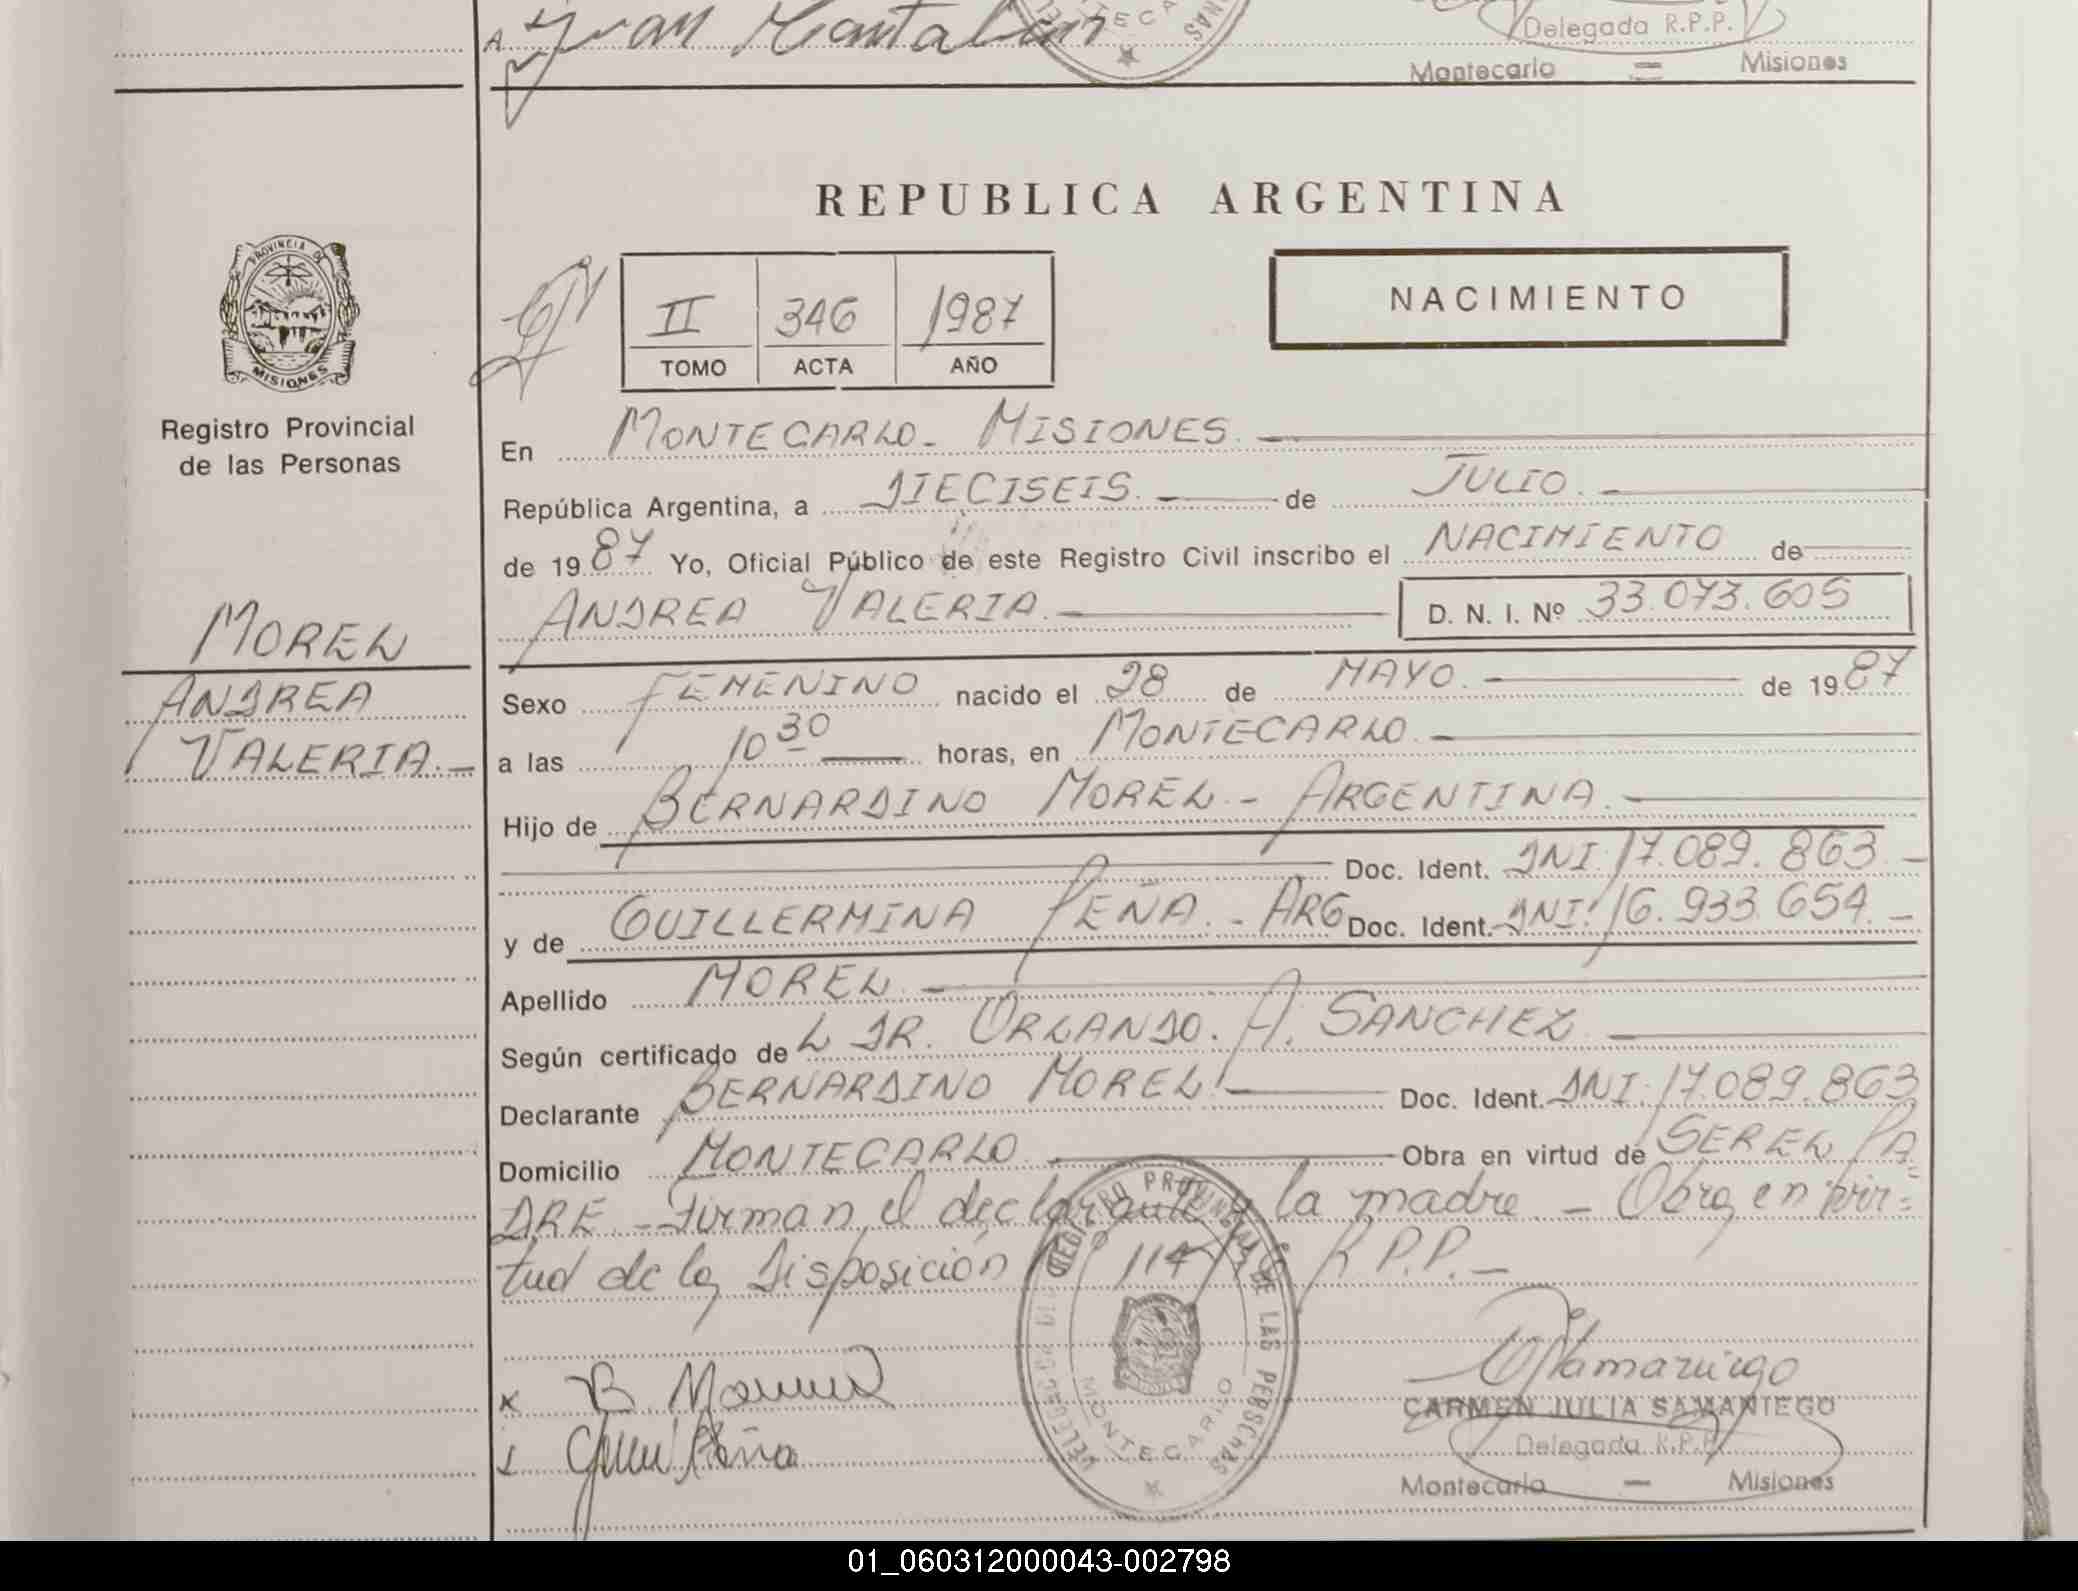 A Juan Cantaleni
Delegada R.P.P.
Montecarlo — Misiones
REPUBLICA ARGENTINA
PROVINCIA DE
MISIONES
Registro Provincial
de las Personas
II 346 1987
TOMO ACTA AÑO
NACIMIENTO
En MONTECARLO - MISIONES. —
República Argentina, a DIECISEIS. — de JULIO. —
de 1987 Yo, Oficial Público de este Registro Civil inscribo el NACIMIENTO de —
ANDREA VALERIA. — D. N. I. Nº 33.073.605
MOREL
ANDREA
VALERIA. —
Sexo FEMENINO nacido el 28 de MAYO. — de 1987
a las 10 30 — horas, en MONTECARLO. —
Hijo de BERNARDINO MOREL - ARGENTINA. —
— Doc. Ident. DNI. 17.089.863 —
y de GUILLERMINA PEÑA. - ARG Doc. Ident. DNI. 16.933.654. —
Apellido MOREL. —
Según certificado de L DR. ORLANDO. A. SANCHEZ. —
Declarante BERNARDINO MOREL. — Doc. Ident. DNI. 17.089.863
Domicilio MONTECARLO. — Obra en virtud de SER EL PA=
DRE - Firman el declarante y la madre - Obra en vir=
tud de la Disposición 114 R.P.P. —
REGISTRO PROVINCIAL DE LAS PERSONAS
MONTECARLO
x B. Morel
Guill Peña
CSamaniego
CARMEN JULIA SAMANIEGO
Delegada R.P.P.
Montecarlo — Misiones
01_060312000043-002798